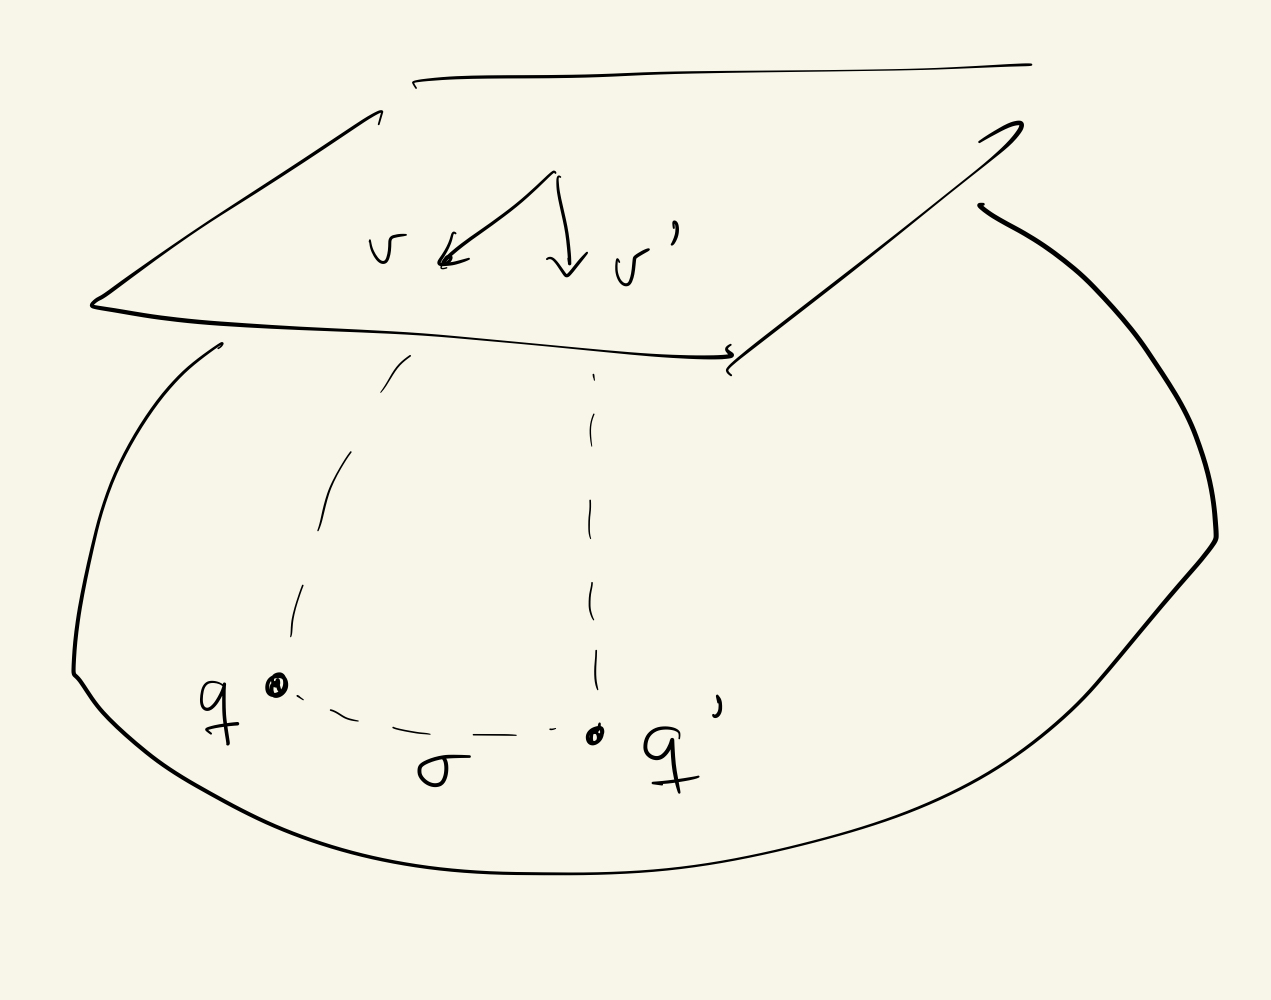 v
v'
q
σ
q'